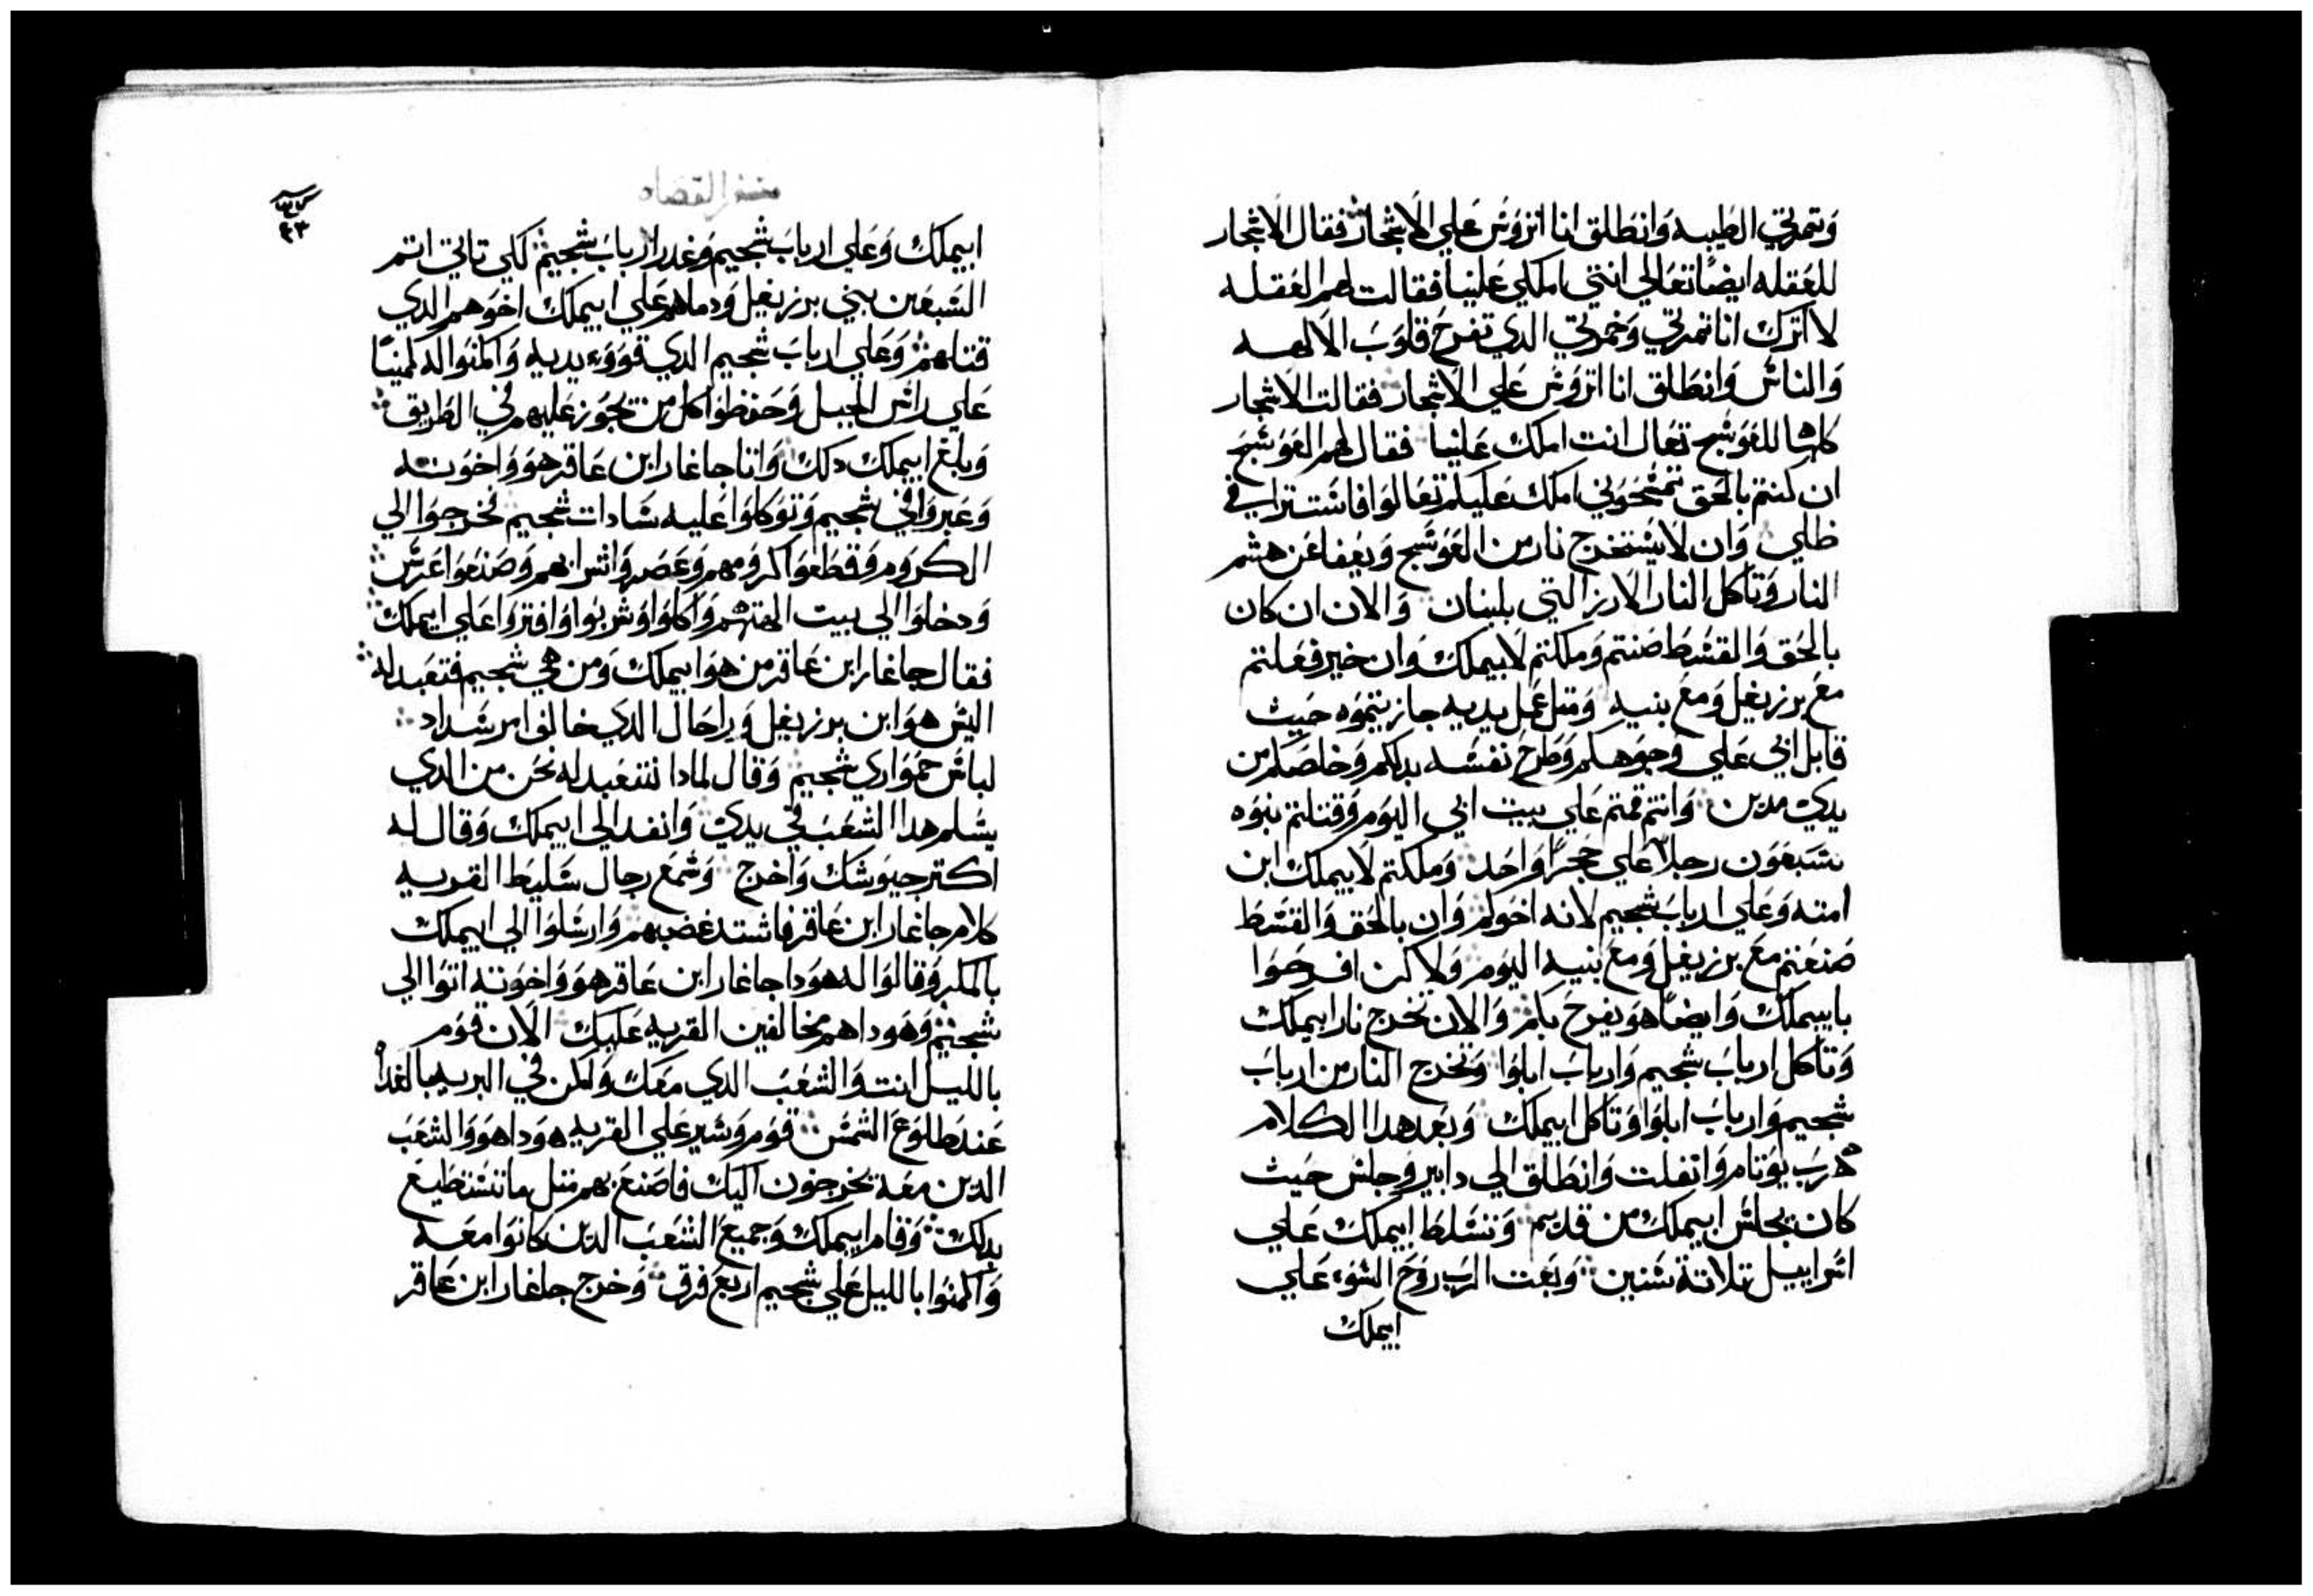 وتمرتي الطيبه وانطلق انا اتروس علي الاشجار فقال الاشجار
للعقله ايضًا تعالي انتي املكي علينا فقالت لهم العقله
لا اترك انا تمرتي وخمرتي الدي تفرح قلوب الالهه
والناس وانطلق انا اتروس علي الاشجار فقالت الاشجار
كلها للعوسج تعال انت املك علينا فقال لهم العوسج
ان كنتم بالحق تمسحوني املك عليكم تعالوا فاستترا في
ظلي وان لا يستخرج نار من العوسج ويعفا عن هشم
النار وتاكل النار الارز التي بلبنان والان ان كان
بالحق والقسط صنتم وملكتم لابيملك وان خير فعلتم
مع برزيغل ومع بنيه ومتل عمل يديه جازيتموه حيث
قابل ابي علي وجوهكم وطرح نفسه بدلكم وخلصكم من
يدي مدين وانتم قمتم علي بيت ابي اليوم وقتلتم بنوه
سبعون رجلاً علي حجرًا واحد وملكتم لابيملك ابن
امته وعلي ارباب شجيم لانه اخوكم وان بالحق والقسط
صنعتم مع برزيغل ومع بنيه اليوم ولاكن افرحوا
بابيملك وايضًا هو يفرح بكم والان تخرج نار ابيملك
وتاكل ارباب شجيم وارباب ابلوا وتخرج النار من ارباب
شجيم وارباب ابلوا وتاكل ابيملك وبعد هدا الكلام
هرب يوتام وانفلت وانطلق الي دابير وجلس حيث
كان يجلس ابيملك من قديم وتسلط ابيملك علي
اسراييل تلاتة سنين وبعت الرب روح السوء علي
ابيملك
سفر القضاه
ابيملك وعلي ارباب شجيم وغدر ارباب شجيم لكي تاتي اتم
السبعين بني برزيغل ودماهم علي ابيملك اخوهم الدي
قتلهم وعلي ارباب شجيم الدي قووء يديه واكمنوا له كمينًا
علي راس الجبل وحفظوا كل من يجوز عليهم في الطريق
وبلغ ابيملك دلك واتا جاغار ابن عاقر هو واخوته
وعبروا في شجيم وتوكلوا عليه سادات شجيم فخرجوا الي
الكروم وقطعوا كرومهم وعصروا شرابهم وصنعوا عرس
ودخلوا الي بيت الهتهم واكلوا وشربوا وافتروا علي ابيملك
فقال جاغار ابن عاقر من هو ابيملك ومن هي شجيم فتعبد له
اليس هو ابن برزيغل وراحال الدي خالفوا مر سداد
لباس حمواري شجيم وقال لمادا نتعبد له نحن من الدي
يسلم هدا الشعب في يدي وانفد الي ابيملك وقال له
اكتر جيوشك واخرج وسمع رجال سليط القريه
كلام جاغار ابن عاقر فاشتد غضبهم وارسلوا الي ابيملك
بالمكر وقالوا له هودا جاغار ابن عاقر هو واخوته اتوا الي
شجيم وهودا هم مخالفين القريه عليك الان قوم
بالليل انت والشعب الدي معك واكمن في البريه بالغداه
عند طلوع الشمس قوم وسير علي القريه هودا هو والشعب
الدين معه يخرجون اليك فاصنع بهم متل ما تستطيع
يدك وقام ابيملك وجميع الشعب الدين كانوا معه
واكمنوا بالليل علي شجيم اربع فرق وخرج جاغار ابن عاقر